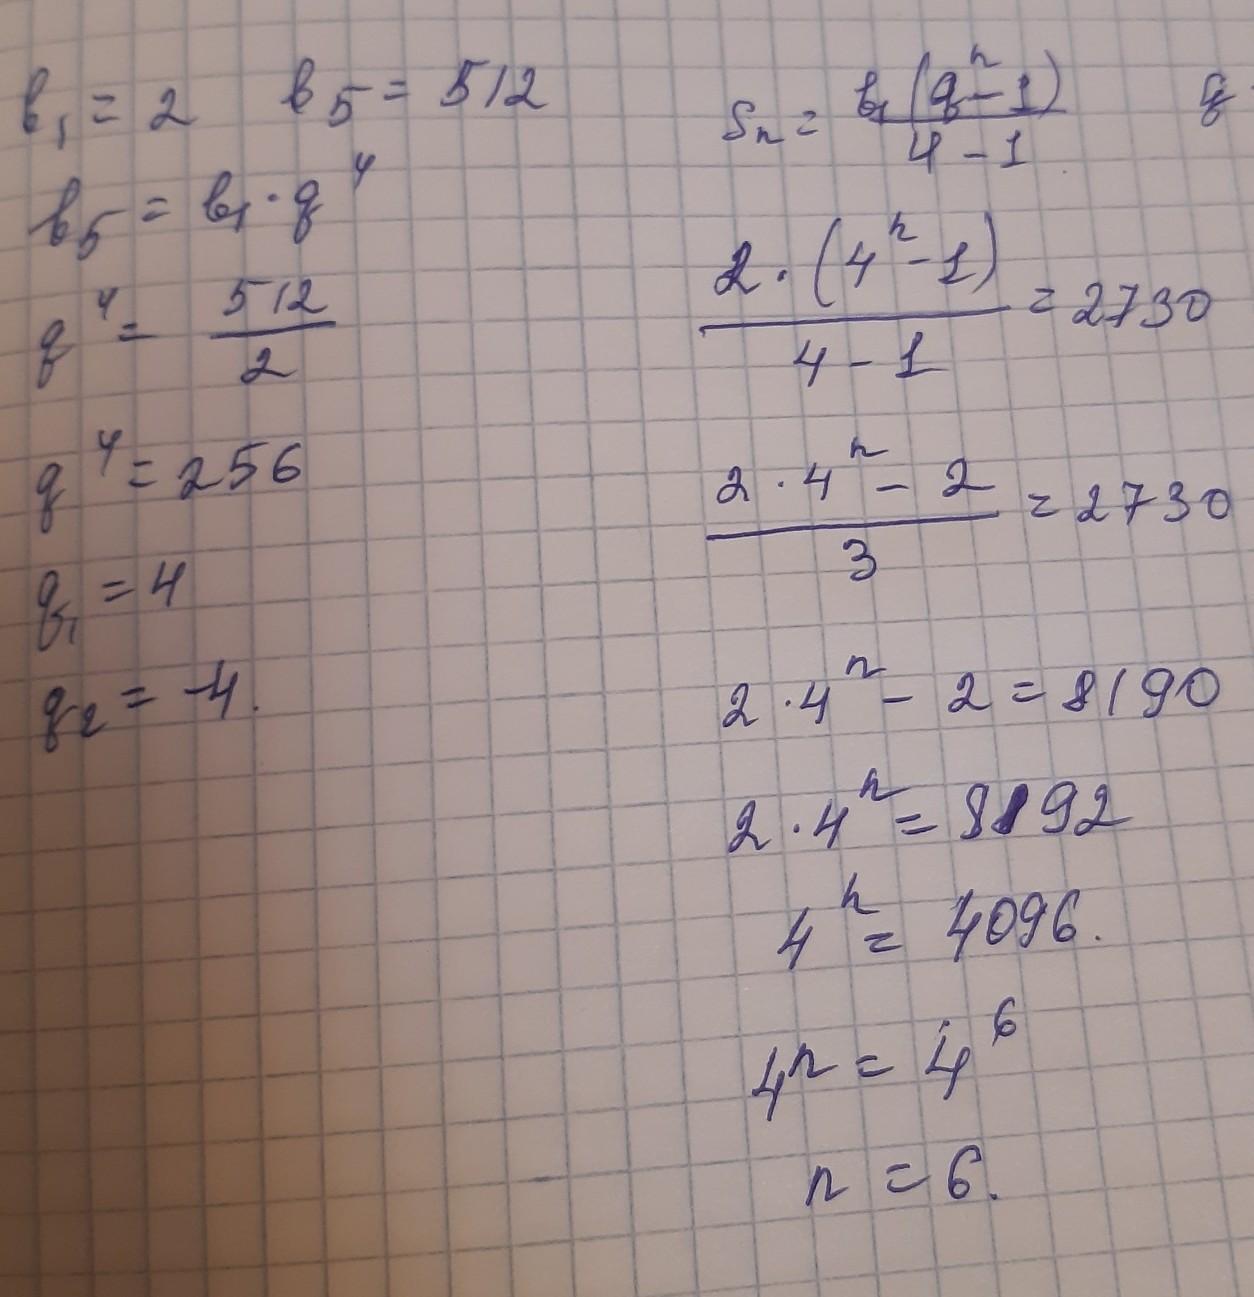 b₁ = 2   b₅ = 512
b₅ = b₁ · q⁴
q⁴ = 512/2
q⁴ = 256
q₁ = 4
q₂ = -4.
Sₙ = b₁(qⁿ - 1)/4 - 1   q
2 · (4ⁿ - 1)/4 - 1 = 2730
2 · 4ⁿ - 2/3 = 2730
2 · 4ⁿ - 2 = 8190
2 · 4ⁿ = 8192
4ⁿ = 4096.
4ⁿ = 4⁶
n = 6.